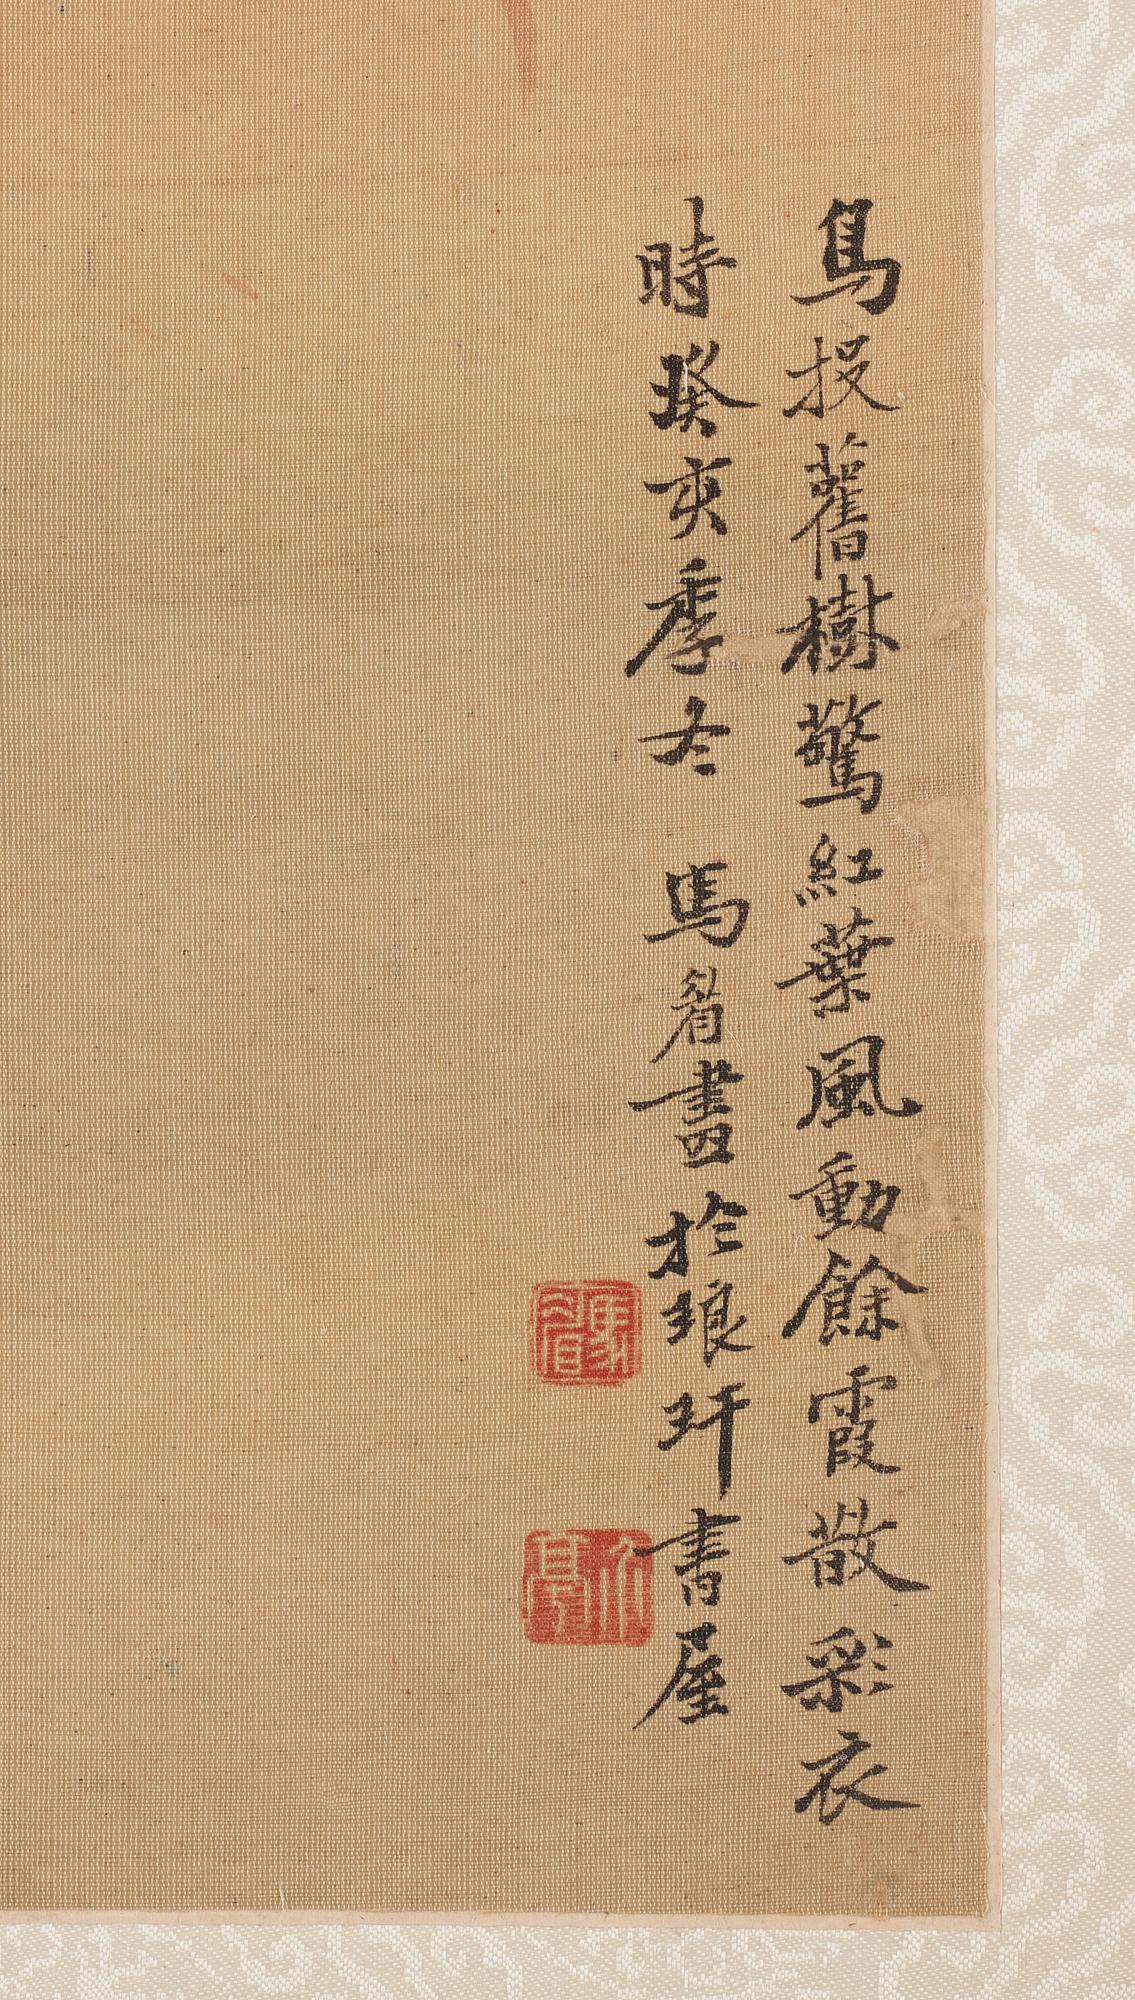 鳥投舊樹驚紅葉風動餘霞散彩衣
時癸亥季冬 馬眘畫於琅玕書屋